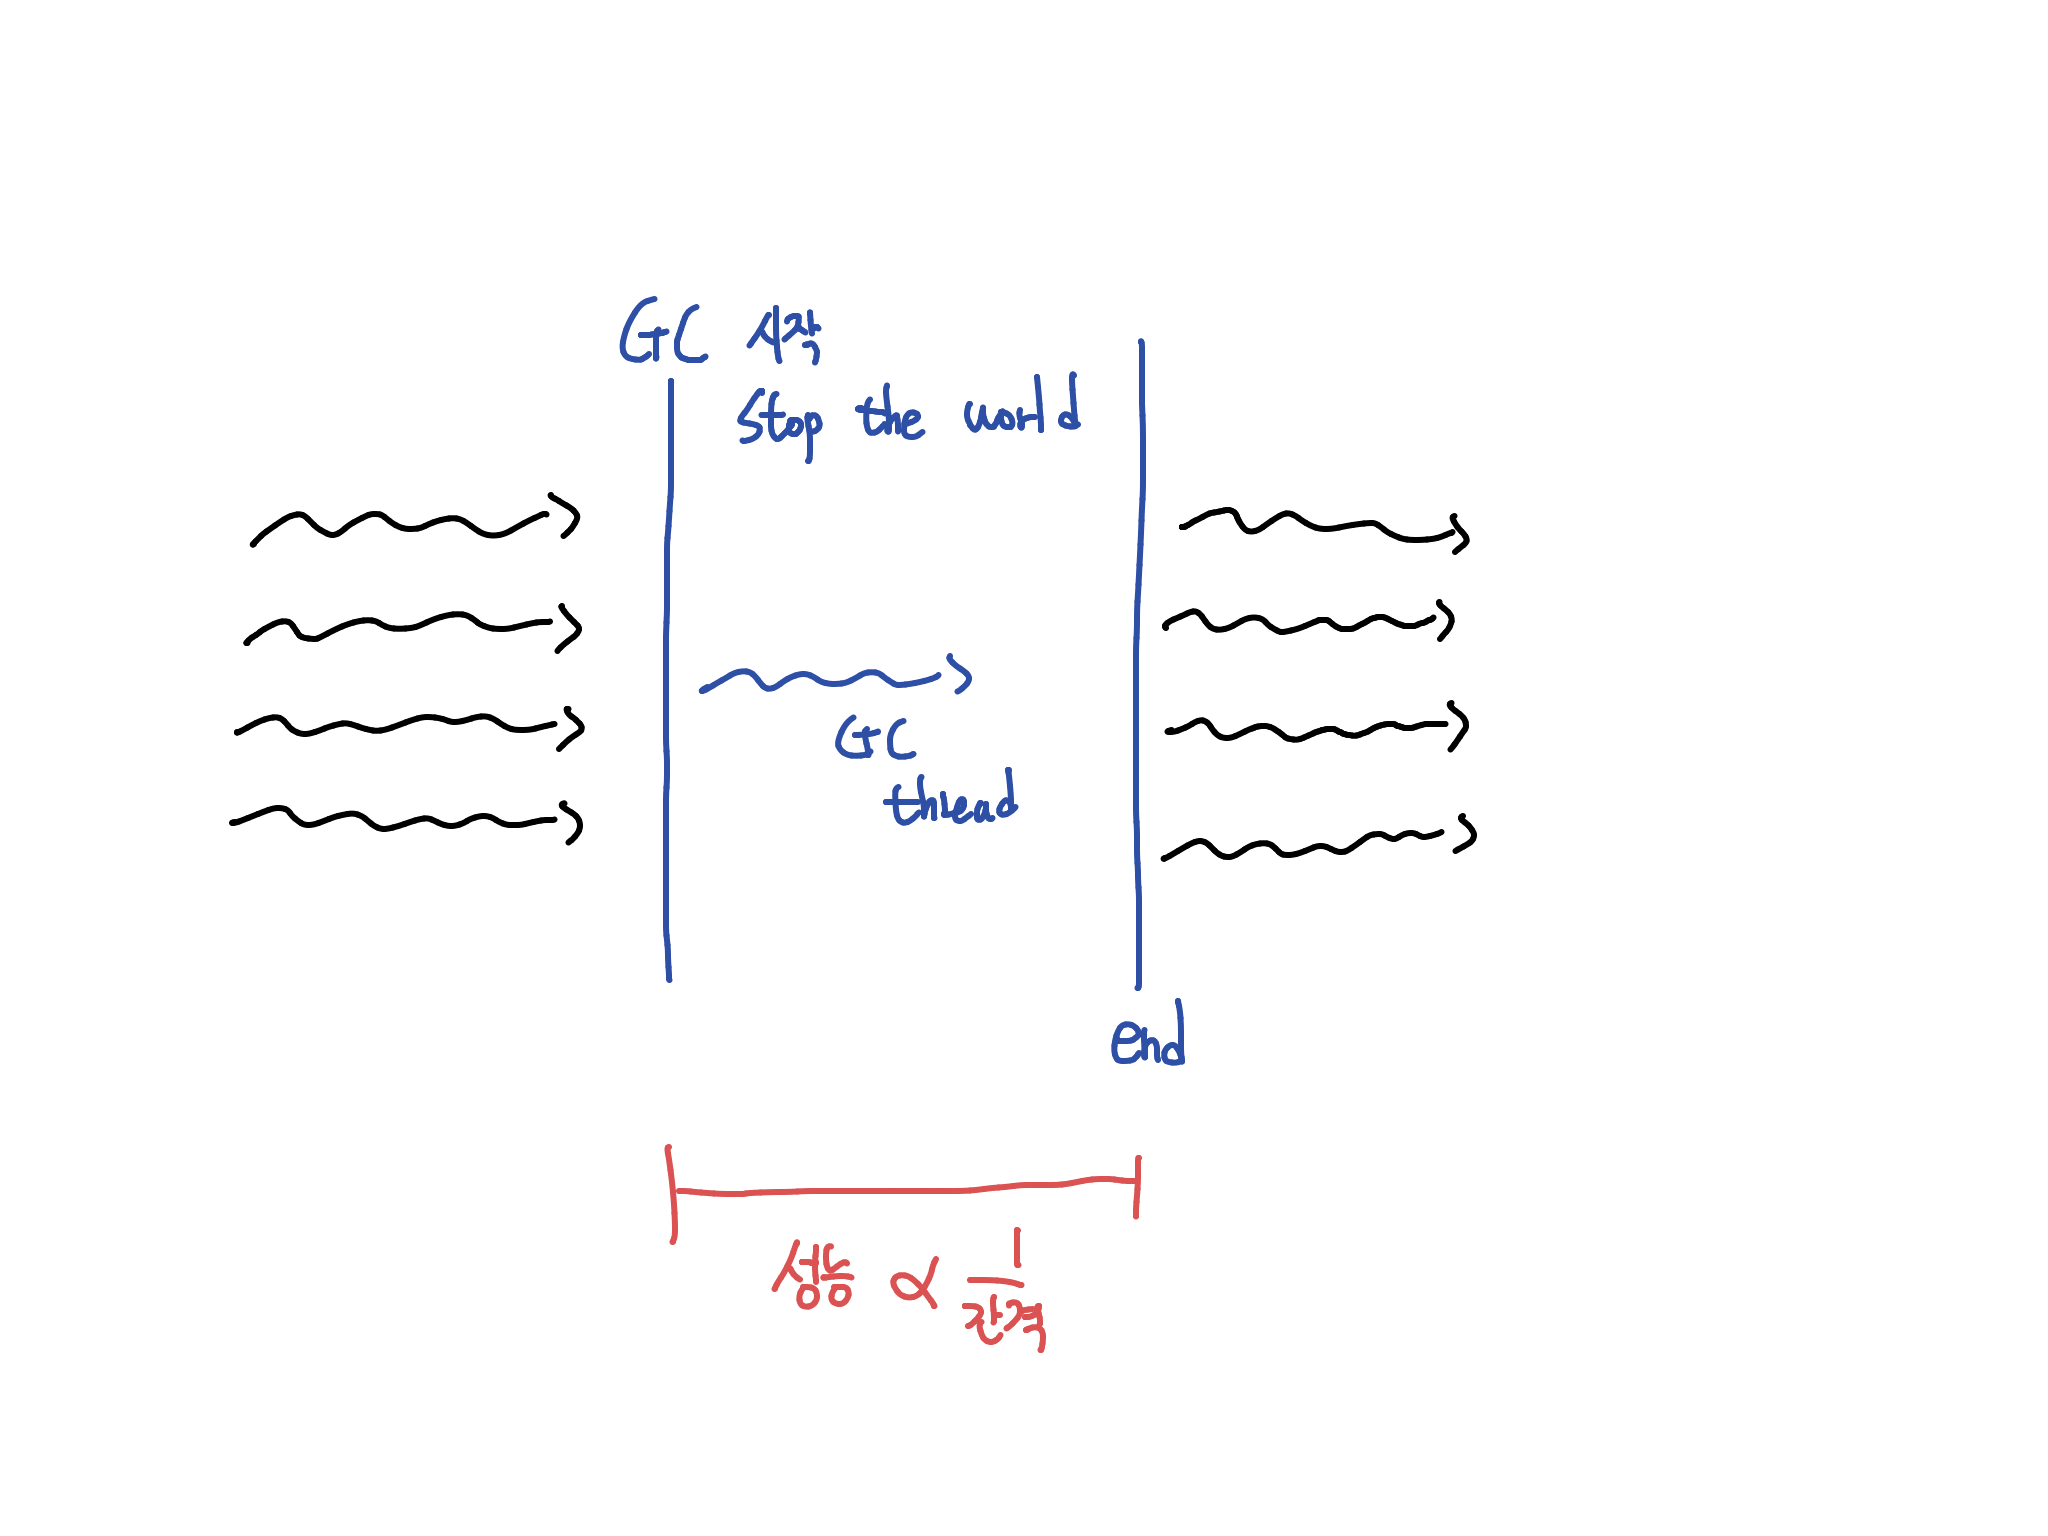 GC 시작
Stop the world
GC
thread
end
성능 ∝ 1
간격